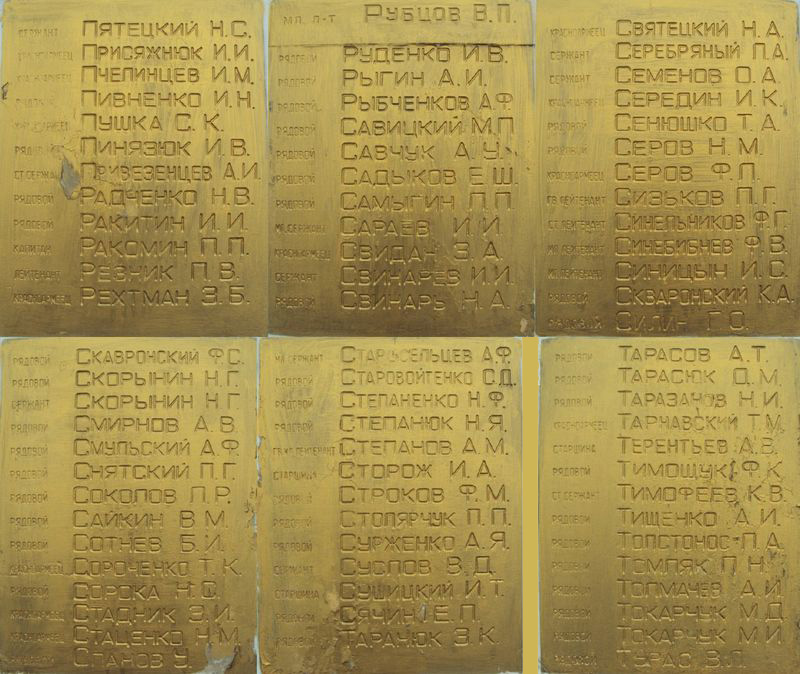 СЕРЖАНТ ПЯТЕЦКИЙ Н.С.
КРАСНОАРМЕЕЦ ПРИСЯЖНЮК И.И.
КРАСНОАРМЕЕЦ ПЧЕЛИНЦЕВ И.М.
РЯДОВОЙ ПИВНЕНКО И.Н.
КРАСНОАРМЕЕЦ ПУШКА С.К.
РЯДОВОЙ ПИНЯЗЮК И.В.
СТ.СЕРЖАНТ ПРИВЕЗЕНЦЕВ А.И.
РЯДОВОЙ РАДЧЕНКО Н.В.
РЯДОВОЙ РАКИТИН И.И.
КАПИТАН РАКОМИН П.П.
ЛЕЙТЕНАНТ РЕЗНИК П.В.
КРАСНОАРМЕЕЦ РЕХТМАН З.Б.
МЛ. Л-Т РУБЦОВ В.П.
РЯДОВОЙ РУДЕНКО И.В.
РЯДОВОЙ РЫГИН А.И.
РЯДОВОЙ РЫБЧЕНКОВ А.Ф.
РЯДОВОЙ САВИЦКИЙ М.П.
РЯДОВОЙ САВЧУК А.У.
РЯДОВОЙ САДЫКОВ Е.Ш.
РЯДОВОЙ САМЫГИН П.П.
МЛ.СЕРЖАНТ САРАЕВ И.И.
КРАСНОАРМЕЕЦ СВИДАН З.А.
СЕРЖАНТ СВИНАРЕВ И.И.
РЯДОВОЙ СВИНАРЬ Н.А.
КРАСНОАРМЕЕЦ СВЯТЕЦКИЙ Н.А.
СЕРЖАНТ СЕРЕБРЯНЫЙ П.А.
СЕРЖАНТ СЕМЕНОВ О.А.
КРАСНОАРМЕЕЦ СЕРЕДИН И.К.
РЯДОВОЙ СЕНЮШКО Т.А.
РЯДОВОЙ СЕРОВ Н.М.
КРАСНОАРМЕЕЦ СЕРОВ Ф.Л.
ГВ.ЛЕЙТЕНАНТ СИЗЬКОВ П.Г.
СТ.ЛЕЙТЕНАНТ СИНЕЛЬНИКОВ Ф.Г.
МЛ.ЛЕЙТЕНАНТ СИНЕБИБНЕВ Ф.В.
МЛ.ЛЕЙТЕНАНТ СИНИЦЫН И.С.
РЯДОВОЙ СКВАРОНСКИЙ К.А.
РЯДОВОЙ СИЛИН Г.О.
РЯДОВОЙ СКАВРОНСКИЙ Ф.С.
РЯДОВОЙ СКОРЫНИН Н.Г.
СЕРЖАНТ СКОРЫНИН Н.Г.
РЯДОВОЙ СМИРНОВ А.В.
РЯДОВОЙ СМУЛЬСКИЙ А.Ф.
РЯДОВОЙ СНЯТСКИЙ П.Г.
РЯДОВОЙ СОКОЛОВ Л.Р.
РЯДОВОЙ САЙКИН В.М.
РЯДОВОЙ СОТНЕВ Б.И.
КРАСНОАРМЕЕЦ СОРОЧЕНКО Т.К.
РЯДОВОЙ СОРОКА Н.С.
КРАСНОАРМЕЕЦ СТАДНИК З.И.
КРАСНОАРМЕЕЦ СТАЦЕНКО Н.М.
РЯДОВОЙ СПАНОВ У.
МЛ.СЕРЖАНТ СТАРОСЕЛЬЦЕВ А.Ф.
РЯДОВОЙ СТАРОВОЙТЕНКО С.Д.
РЯДОВОЙ СТЕПАНЕНКО Н.Ф.
РЯДОВОЙ СТЕПАНЮК Н.Я.
ГВ.МЛ.ЛЕЙТЕНАНТ СТЕПАНОВ А.М.
СТАРШИНА СТОРОЖ И.А.
РЯДОВОЙ СТРОКОВ Ф.М.
РЯДОВОЙ СТОЛЯРЧУК П.П.
РЯДОВОЙ СУРЖЕНКО А.Я.
СЕРЖАНТ СУСЛОВ В.Д.
СТАРШИНА СУШИЦКИЙ И.Т.
РЯДОВОЙ СЯЧИН Е.П.
РЯДОВОЙ ТАРАНЮК З.К.
РЯДОВОЙ ТАРАСОВ А.Т.
РЯДОВОЙ ТАРАСЮК Д.М.
РЯДОВОЙ ТАРАЗАНОВ Н.И.
КРАСНОАРМЕЕЦ ТАРНАВСКИЙ Т.М.
СТАРШИНА ТЕРЕНТЬЕВ А.В.
РЯДОВОЙ ТИМОЩУК Ф.К.
СТ.СЕРЖАНТ ТИМОФЕЕВ К.В.
РЯДОВОЙ ТИЩЕНКО А.И.
РЯДОВОЙ ТОЛСТОНОС Л.А.
РЯДОВОЙ ТОМЛЯК П.Н.
РЯДОВОЙ ТОЛМАЧЕВ А.И.
РЯДОВОЙ ТОКАРЧУК М.Д.
РЯДОВОЙ ТОКАРЧУК М.И.
РЯДОВОЙ ТУРАС В.Л.